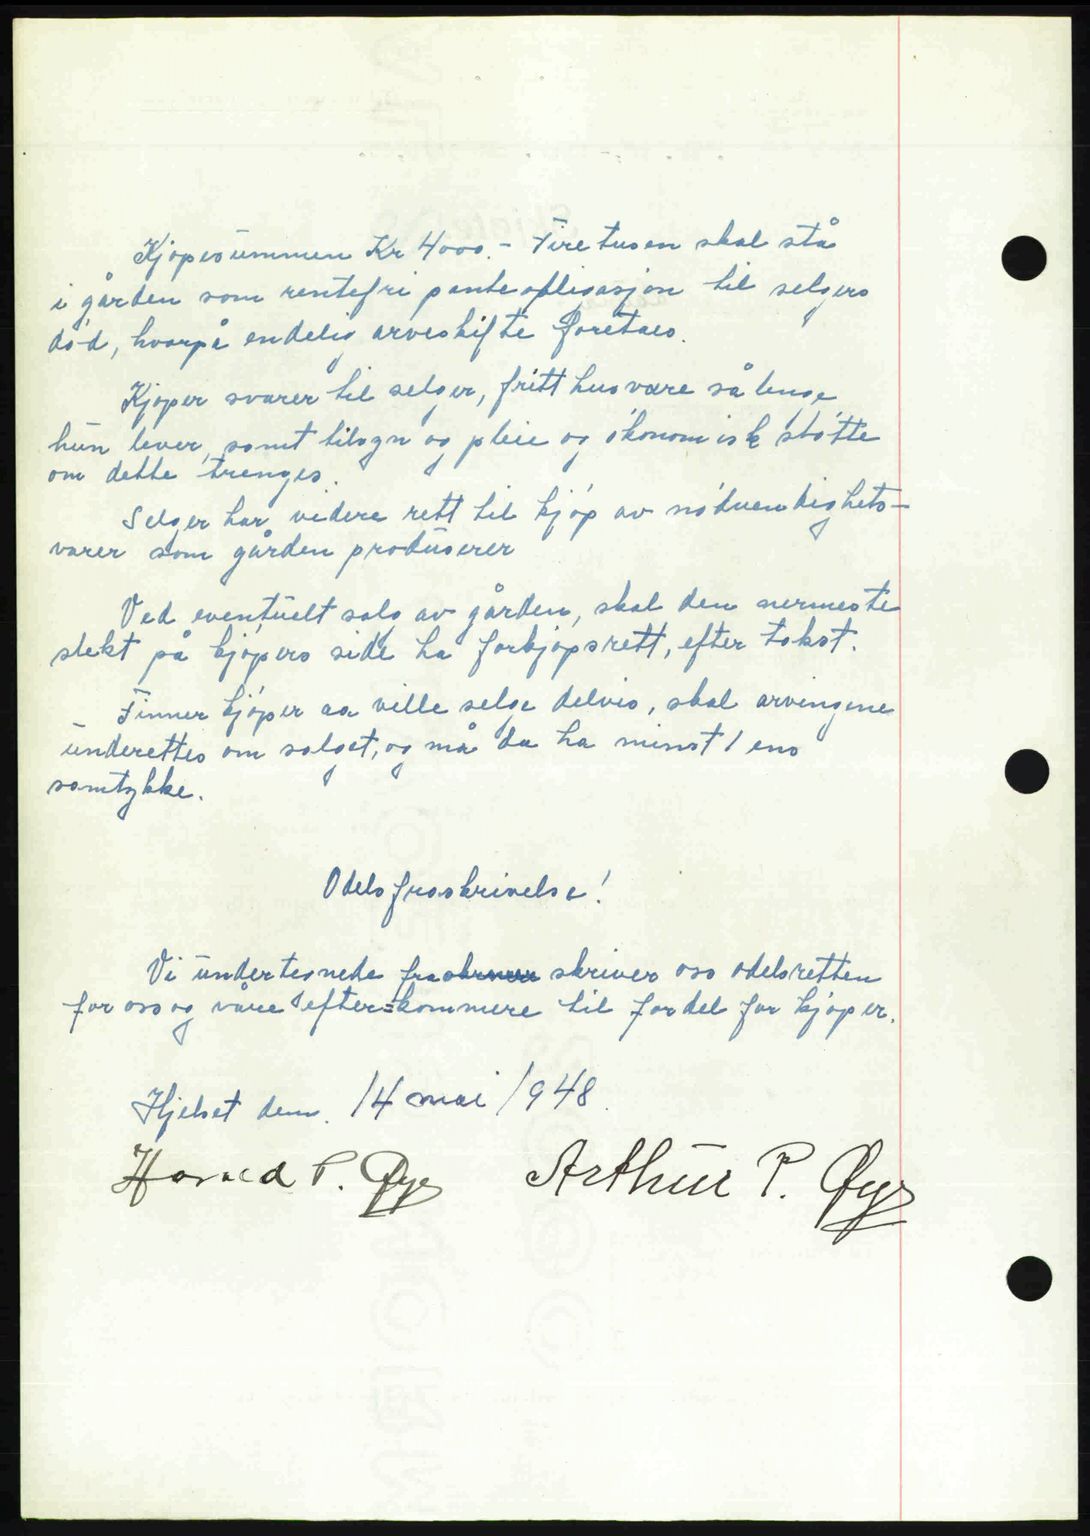 Kjøpesummen Kr 4000.- Fire tusen skal stå
i gården som rentefri panteobligasjon til selgers
død, hvorpå endelig arveskifte foretaes.
Kjøper svarer til selger, fritt husvære så lenge
hun lever, samt tilsyn og pleie og økonomisk støtte
om dette trenges.
Selger har videre rett til kjøp av nødvendighets-
varer som gården produserer
Ved eventuelt salg av gården, skal den nermeste
slekt på kjøpers side ha forkjøpsrett, efter takst.
Finner kjøper aa ville selge delvis, skal arvingene
underettes om salget, og må da ha minst 1 ens
samtykke.
Odelsfraskrivelse!
Vi undertegnede skriver oss odelsretten
for oss og våre efter=kommere til fordel for kjøper.
Hjelset den. 14 mai 1948.
Harald P. Øye Arthur P. Øye